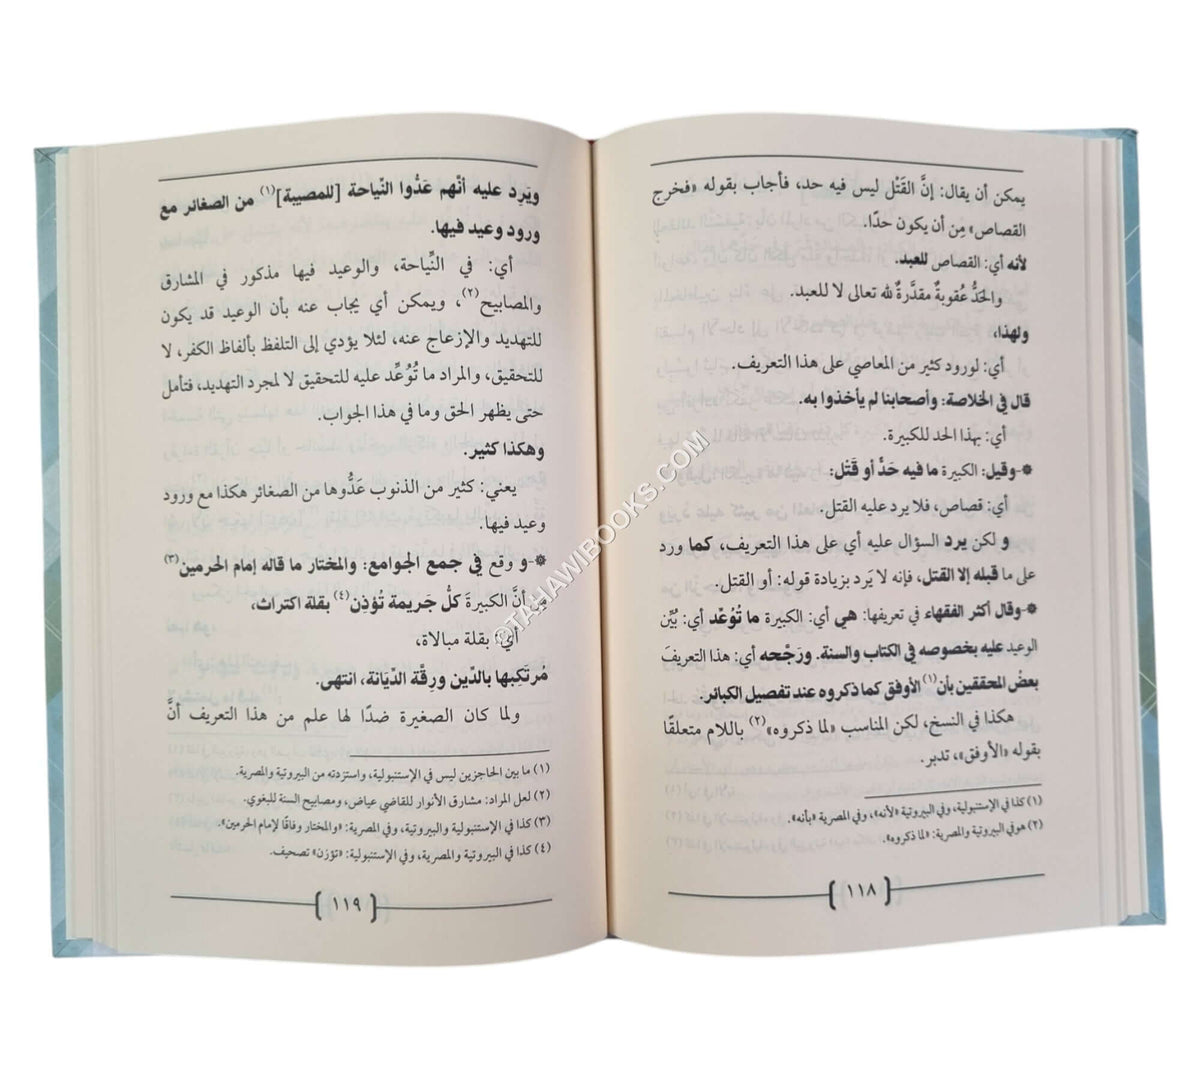 يمكن أن يقال: إنَّ القَتْل ليس فيه حد، فأجاب بقوله «فخرج
القصاص» مِن أن يكون حدًا.
لأنه أي: القصاص للعبد.
والحَدُّ عُقوبةٌ مقدَّرةٌ لله تعالى لا للعبد.
ولهذا،
أي: لورود كثير من المعاصي على هذا التعريف.
قال في الخلاصة: وأصحابنا لم يأخذوا به.
أي: بهذا الحد للكبيرة.
※-وقيل: الكبيرة ما فيه حَدْ أو قَتْل:
أي: قصاص، فلا يرد عليه القتل.
و لكن يرد السؤال عليه أي على هذا التعريف، كما ورد
على ما قبله إلا القتل، فإنه لا يَرد بزيادة قوله: أو القتل.
※-وقال أكثر الفقهاء في تعريفها: هي أي: الكبيرة ما تُوُعِّد أي: بُيِّن
الوعيد عليه بخصوصه في الكتاب والسنة. ورَجْحه أي: هذا التعريفَ
بعضُ المحققين بأن(١) الأوفق كما ذكروه عند تفصيل الكبائر.
هكذا في النسخ، لكن المناسب «لما ذكروه»(٢) باللام متعلقًا
بقوله «الأوفق»، تدبر.
(١) كذا في الإستنبولية، وفي البيروتية «لأنه»، وفي المصرية «بأنه».
(٢) هو في البيروتية والمصرية: «لما ذكروه».
١١٨
ويَرِد عليه أنَّهم عَدُّوا النِّياحة [للمصيبة](١) من الصغائر مع
ورود وعيد فيها.
أي: في النِّياحة، والوعيد فيها مذكور في المشارق
والمصابيح(٢)، ويمكن أي يجاب عنه بأن الوعيد قد يكون
للتهديد والإزعاج عنه، لئلا يؤدي إلى التلفظ بألفاظ الكفر، لا
للتحقيق، والمراد ما تُوُعِّد عليه للتحقيق لا لمجرد التهديد، فتأمل
حتى يظهر الحق وما في هذا الجواب.
وهكذا كثير.
يعني: كثير من الذنوب عَدُّوها من الصغائر هكذا مع ورود
وعيد فيها.
※-و وقع في جمع الجوامع: والمختار ما قاله إمام الحرمين(٣)
من أنَّ الكبيرةَ كلُّ جَريمة تُؤذِن(٤) بقلة اكتراث،
أي: بقلة مبالاة،
مُرتَكِبها بالدِّين ورِقْة الدِّيَانة، انتهى.
ولما كان الصغيرة ضدًا لها علم من هذا التعريف أنَّ
(١) ما بين الحاجزين ليس في الإستنبولية، واستزدته من البيروتية والمصرية.
(٢) لعل المراد: مشارق الأنوار للقاضي عياض، ومصابيح السنة للبغوي.
(٣) كذا في الإستنبولية والبيروتية، وفي المصرية: «والمختار وفاقًا لإمام الحرمين».
(٤) كذا في البيروتية والمصرية، وفي الإستنبولية: «تؤزن» تصحيف.
١١٩
©TAHAWIBOOKS.COM